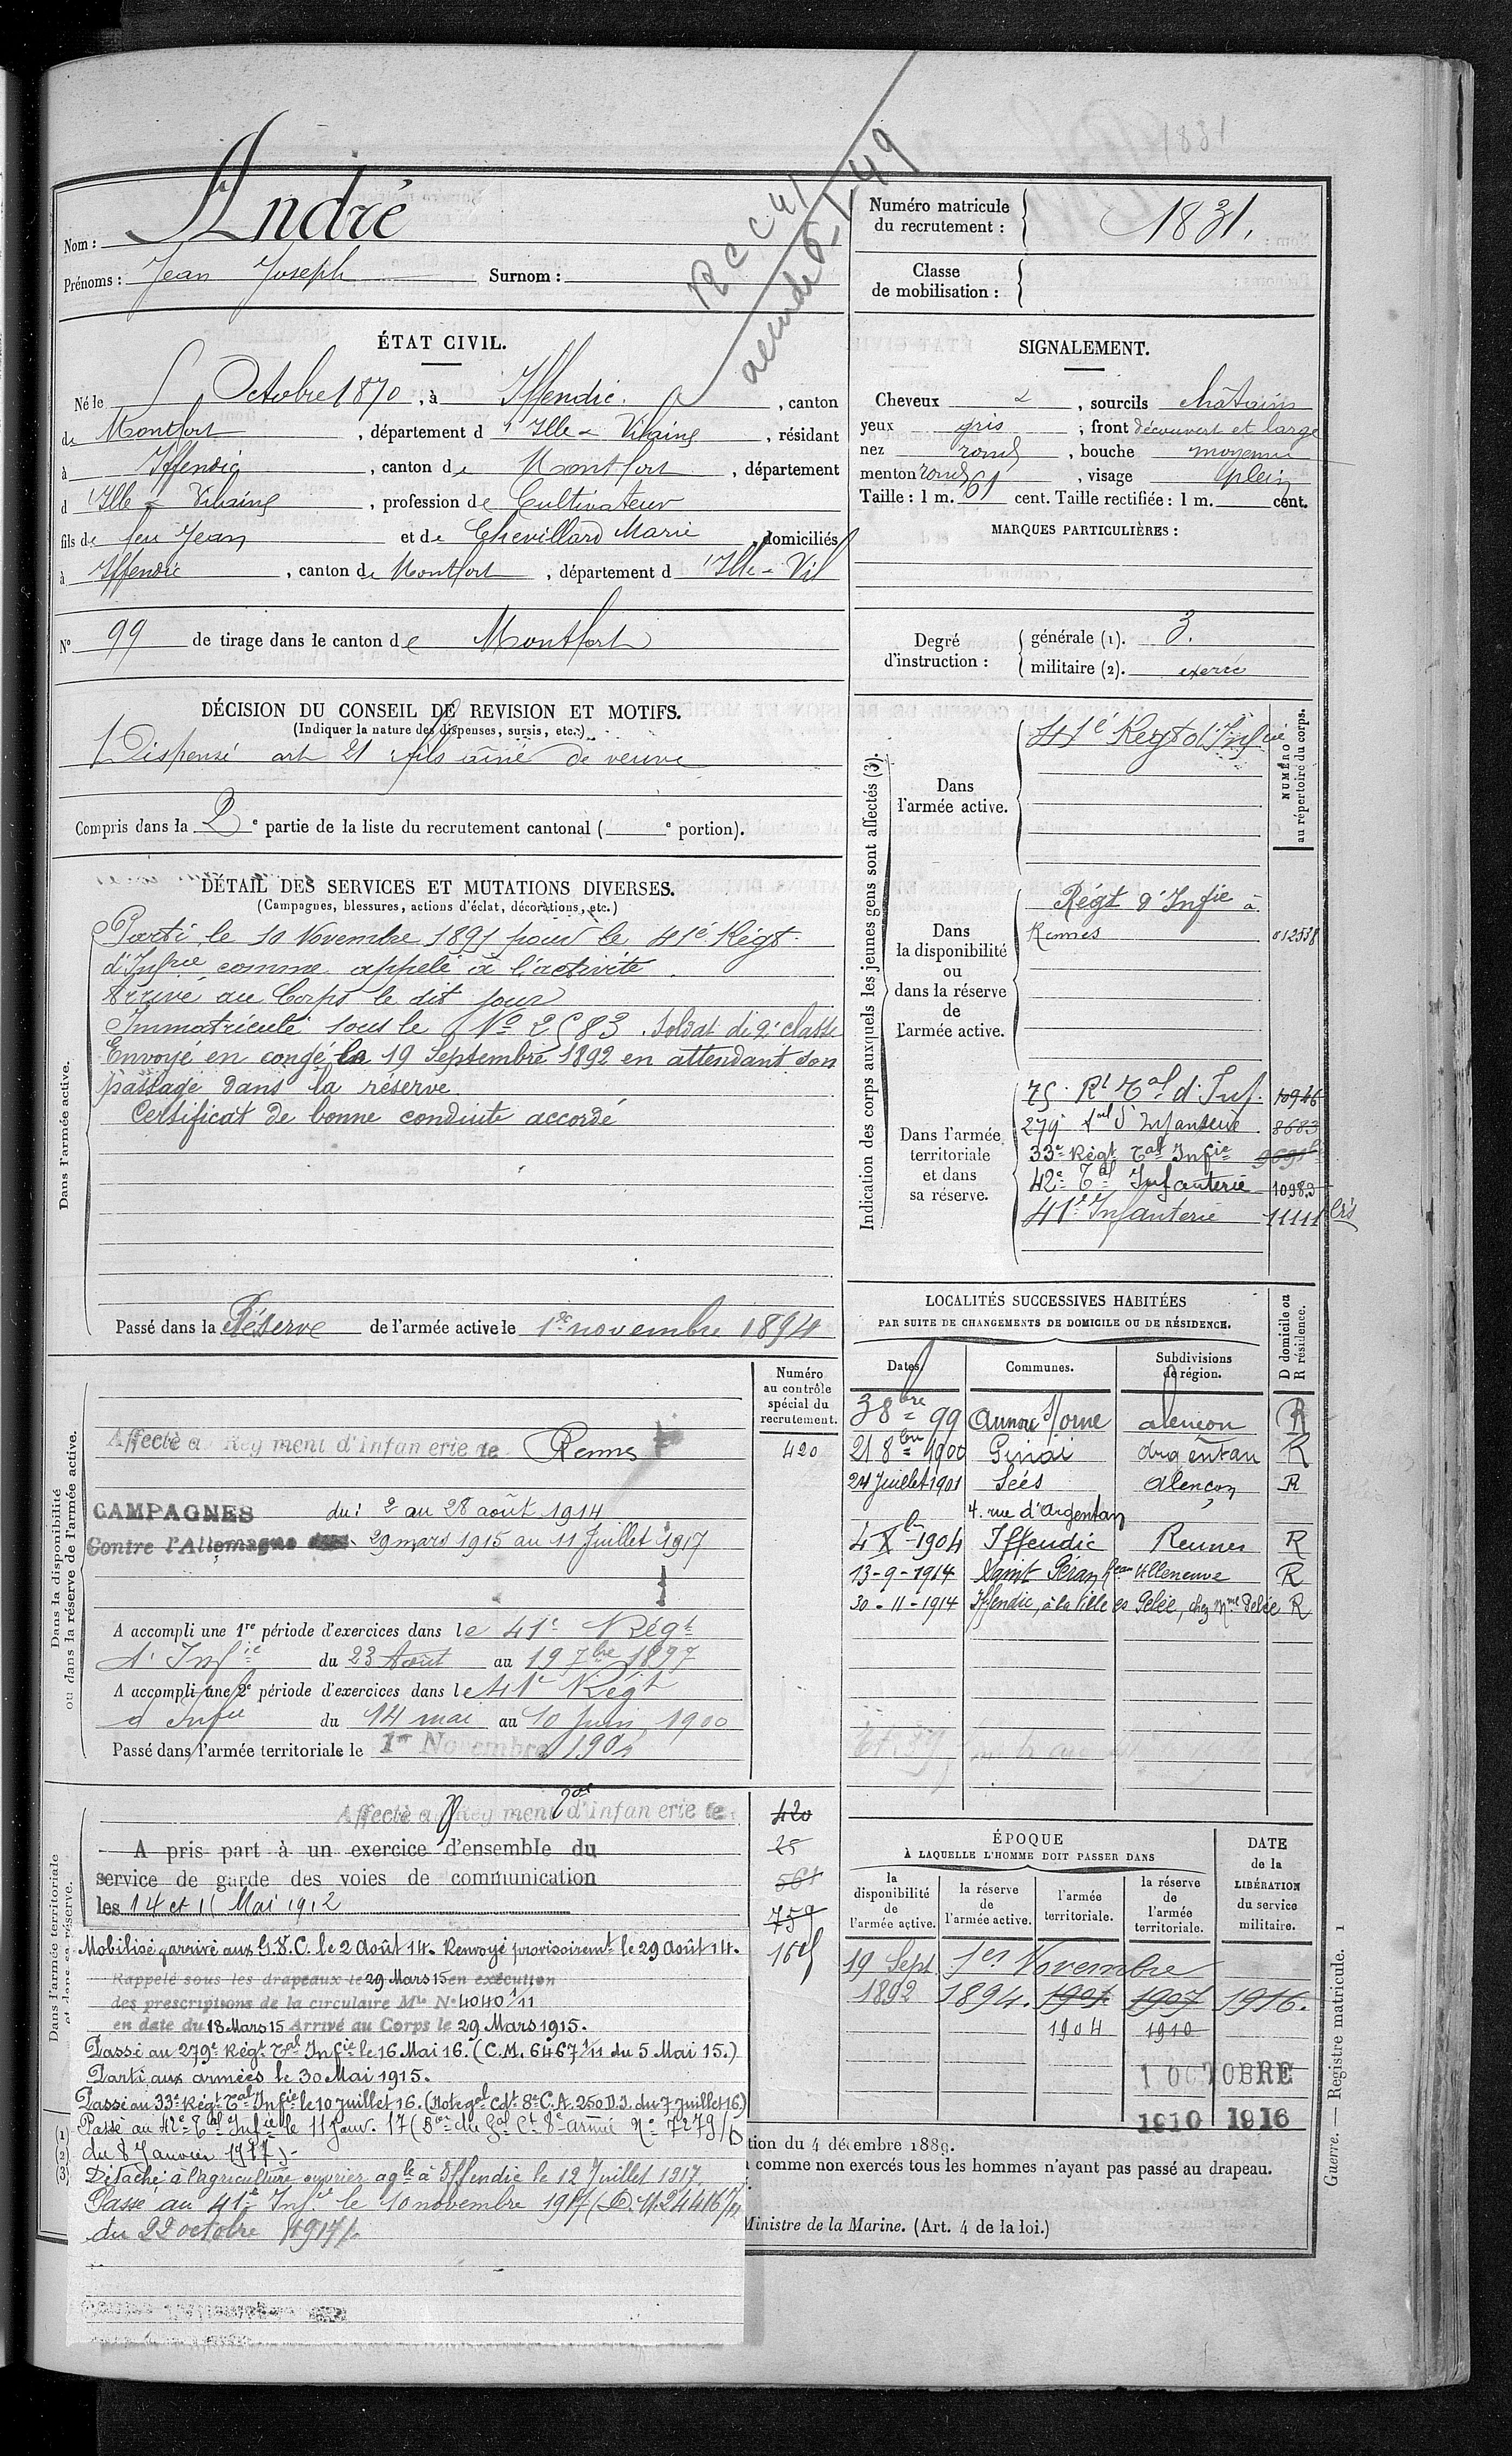 1831
Nom : André
Prénoms : Jean Joseph Surnom :
R C C 41
Numéro matricule du recrutement : 1831.
Classe de mobilisation :
ÉTAT CIVIL.
Né le 5 Octobre 1870, à Iffendic, canton
de Montfort, département d'Ille-&-Vilaine, résidant
à Iffendic, canton de Montfort, département
d'Ille & Vilaine, profession de Cultivateur
fils de feu Jean et de Chevillard Marie, domiciliés
à Iffendic, canton de Montfort, département d'Ille-&-Vil
N° 99 de tirage dans le canton de Montfort
SIGNALEMENT.
Cheveux &, sourcils chatains
yeux gris, front découvert et large
nez rond, bouche moyenne
menton rond, visage plein
Taille : 1 m. 61 cent. Taille rectifiée : 1 m. cent.
MARQUES PARTICULIÈRES :
Degré d'instruction :
générale (1). 3.
militaire (2). exercé
DÉCISION DU CONSEIL DE REVISION ET MOTIFS.
(Indiquer la nature des dispenses, sursis, etc.)
Dispensé art 21 fils aîné de veuve
Compris dans la 2e partie de la liste du recrutement cantonal ( e portion).
DÉTAIL DES SERVICES ET MUTATIONS DIVERSES.
(Campagnes, blessures, actions d'éclat, décorations, etc.)
Dans l'armée active.
Parti le 10 Novembre 1891 pour le 41e Régt
d'Infrie comme appelé à l'activité.
Arrivé au Corps le dit jour
Immatriculé sous le No 2583. Soldat de 2e classe
Envoyé en congé le 19 Septembre 1892 en attendant son
passage dans la réserve.
Certificat de bonne conduite accordé
Passé dans la Réserve de l'armée active le 1er novembre 1894
Indication des corps auxquels les jeunes gens sont affectés (3).
NUMÉRO au répertoire du corps.
Dans l'armée active.
41e Régt d'Infie
Dans la disponibilité ou dans la réserve de l'armée active.
Régt d'Infie à
Rennes 012538
Dans l'armée territoriale et dans sa réserve.
75e Rt Tal d'Inf. 10946
279e Tal d'Infanterie 8683
33e Régt Tal Infie
42e Tal Infanterie 10983
41e Infanterie 11111 bis
LOCALITÉS SUCCESSIVES HABITÉES
PAR SUITE DE CHANGEMENTS DE DOMICILE OU DE RÉSIDENCE.
Dates. Communes. Subdivisions de région. D domicile ou R résidence.
3 8bre 99 Orne alençon R
21 8bre 1900 Ginai argentan R
24 Juillet 1901 Séés alençon R
4. rue d'Argentan
4 Xbre 1904 Iffendic Rennes R
13-9-1914 Saint Péran Villeneuve R
30-11-1914 Iffendic, à la Ville es Gelée, chez Mme Gelée R
Dans la disponibilité ou dans la réserve de l'armée active.
Numéro au contrôle spécial du recrutement.
Affecté au Régiment d'Infanterie de Rennes 420
CAMPAGNES du : 2 au 28 août 1914
Contre l'Allemagne 29 mars 1915 au 11 Juillet 1917
A accompli une 1re période d'exercices dans le 41e Régt
d'Infie du 23 Août au 19 7bre 1897
A accompli une 2e période d'exercices dans le 41e Régt
d'Infie du 14 mai au 10 Juin 1900
Passé dans l'armée territoriale le 1er Novembre 1904
Dans l'armée territoriale et dans sa réserve.
Affecté au Régiment d'Infanterie de
420
25
561
759
A pris part à un exercice d'ensemble du
service de garde des voies de communication
les 14 et 15 Mai 1912
Mobilisé & arrivé aux G.V.C. le 2 Août 14. Renvoyé provisoiremt le 29 Août 14.
Rappelé sous les drapeaux le 29 Mars 15 en exécution
des prescriptions de la circulaire Mlle No 4040 1/11
en date du 18 Mars 15 Arrivé au Corps le 29 Mars 1915.
Passé au 279e Régt Tal Infie le 16 Mai 16. (C.M. 6467 1/11 du 5 Mai 15.)
Parti aux armées le 30 Mai 1915.
Passé au 33e Régt Tal Infie le 10 Juillet 16. (Note gal Cdt 8e C.A. 250 D.I. du 7 Juillet 16)
Passé au 42e Tal Infie le 11 Janv. 17 (Don du Gal Ct 8e armée No 7279/D
du 8 Janvier 1917)-
Détaché à l'agriculture ouvrier agle à Iffendic le 12 Juillet 1917
Passé au 41e Infie le 10 novembre 1917 (D.M. 24416 1/11
du 22 octobre 1917).
ÉPOQUE
À LAQUELLE L'HOMME DOIT PASSER DANS
la disponibilité de l'armée active.
la réserve de l'armée active.
l'armée territoriale.
la réserve de l'armée territoriale.
DATE de la LIBÉRATION du service militaire.
19 Sept 1er Novembre
1892 1894. 1901. 1907 1916.
1904 1910
1 OCTOBRE
1910 1916
(1)
(2)
(3)
tion du 4 décembre 1889.
comme non exercés tous les hommes n'ayant pas passé au drapeau.
Ministre de la Marine. (Art. 4 de la loi.)
Guerre. — Registre matricule. 1